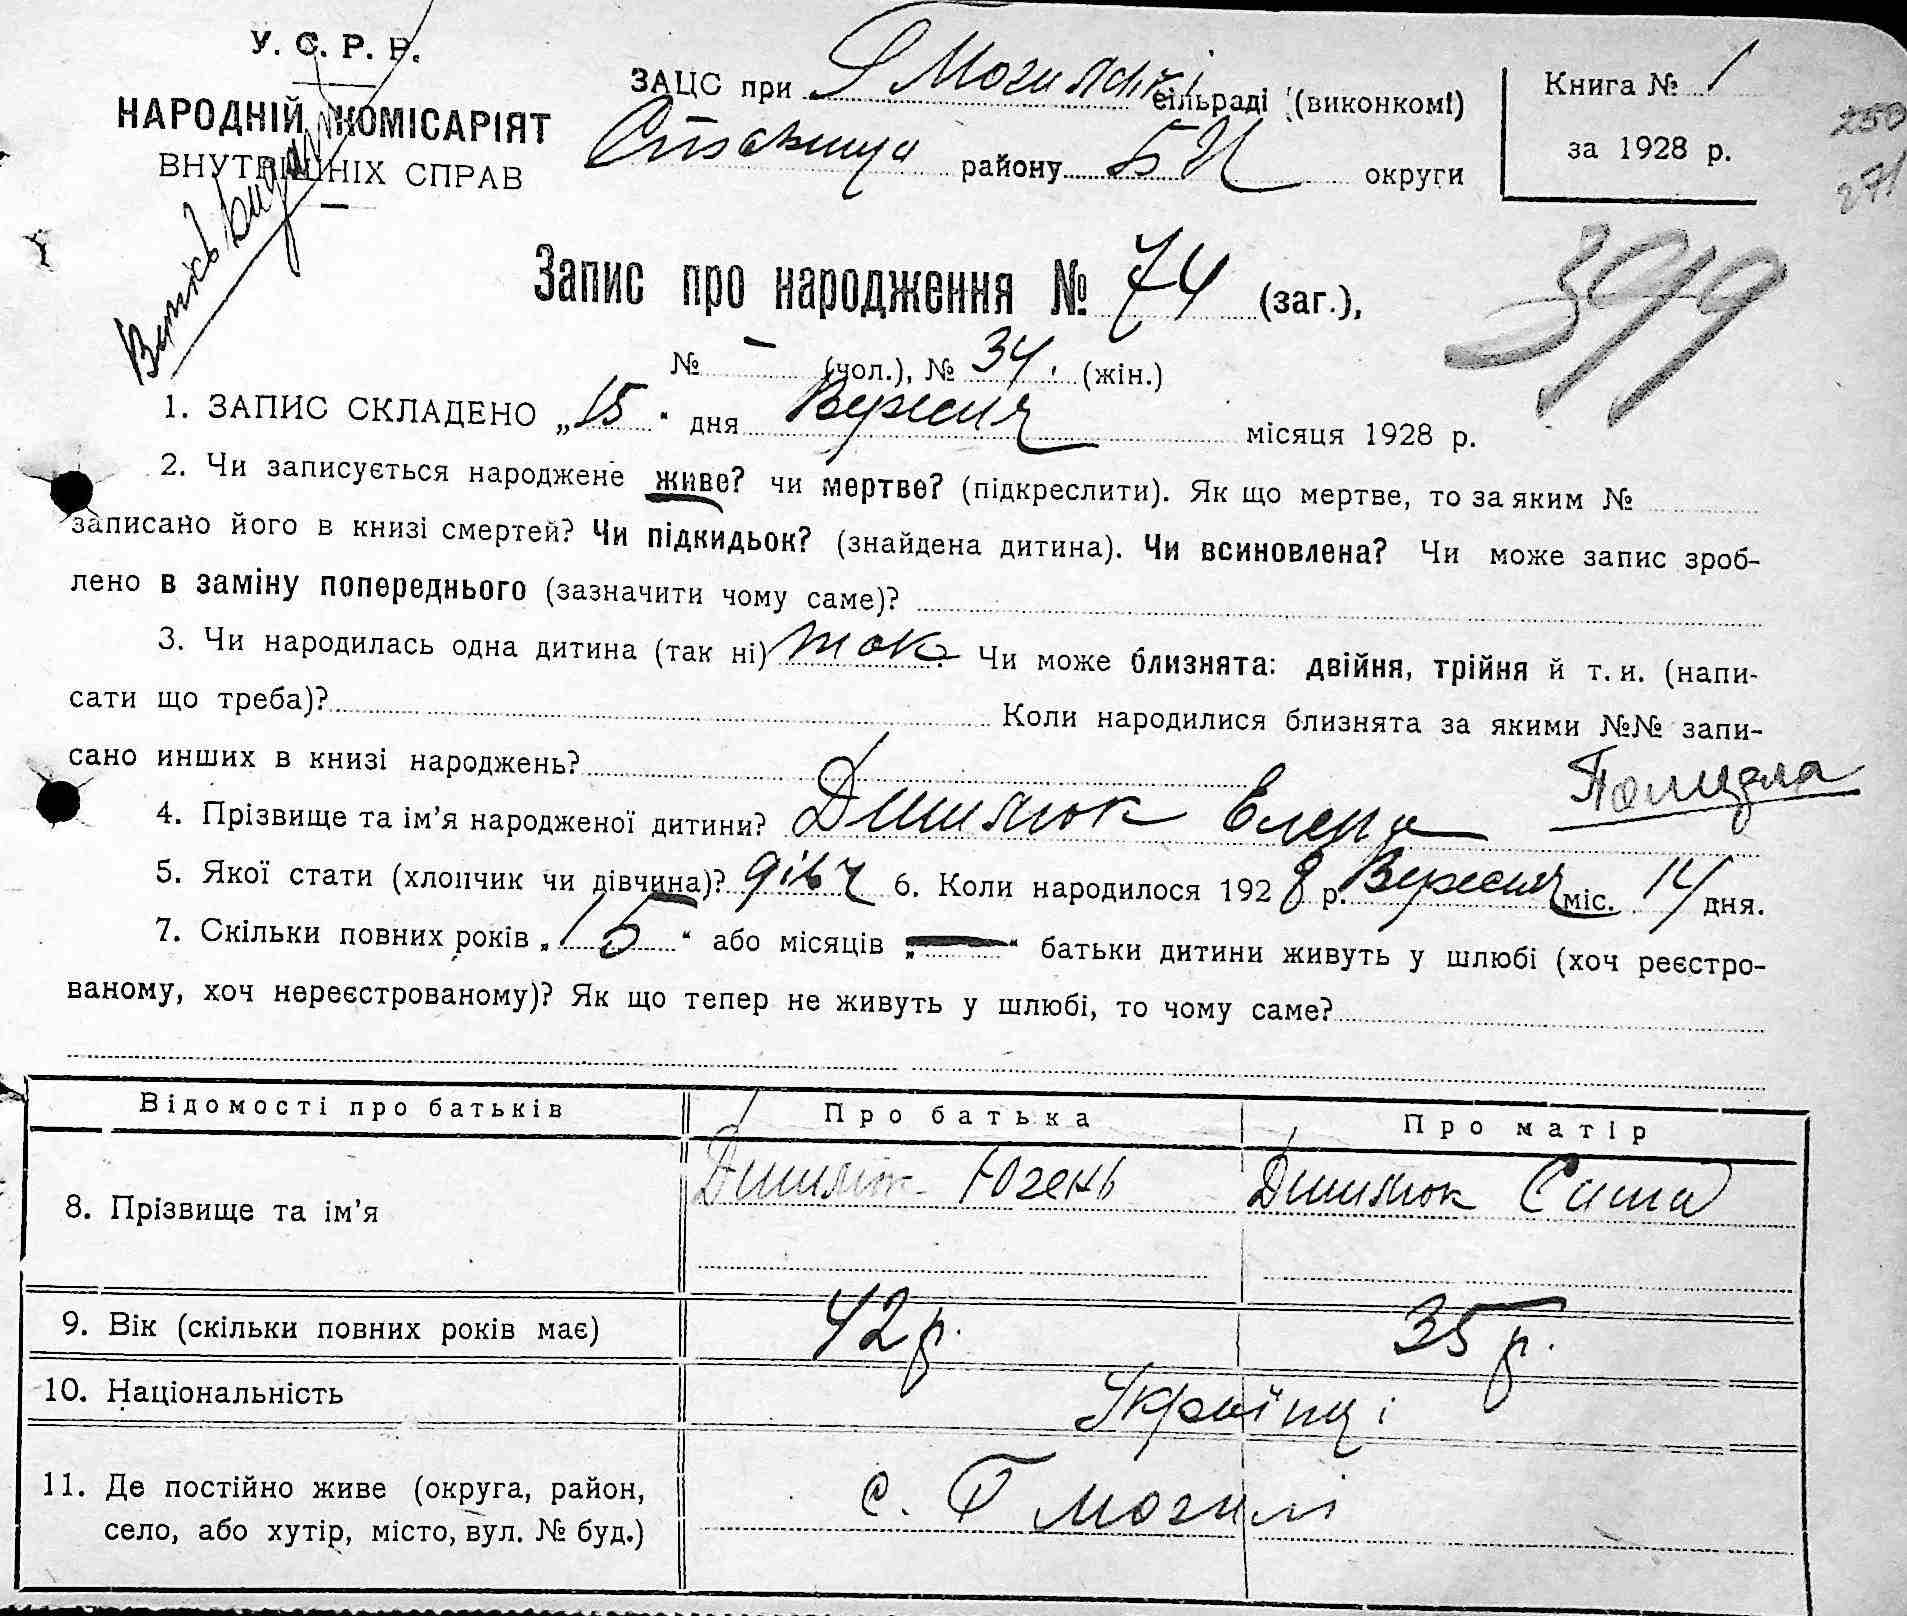 У. С. Р. Р.
НАРОДНІЙ КОМІСАРІЯТ
ВНУТРІШНІХ СПРАВ
ЗАЦС при сільраді (виконкомі)
району БЦ округи
Книга № 1
за 1928 р.
250
271
399
Запис про народження № 74 (заг.),
№ - (чол.), № 34. (жін.)
1. ЗАПИС СКЛАДЕНО „15" дня Вересня місяця 1928 р.
2. Чи записується народжене живе? чи мертве? (підкреслити). Як що мертве, то за яким №
записано його в книзі смертей? Чи підкидьок? (знайдена дитина). Чи всиновлена? Чи може запис зроб-
лено в заміну попереднього (зазначити чому саме)?
3. Чи народилась одна дитина (так ні) так. Чи може близнята: двійня, трійня й т. и. (напи-
сати що треба)? Коли народилися близнята за якими №№ запи-
сано инших в книзі народжень?
4. Прізвище та ім'я народженої дитини? Елена
5. Якої стати (хлопчик чи дівчина)? дівч 6. Коли народилося 1928 р. Вересня міс. 14 дня.
7. Скільки повних років „15" або місяців „—" батьки дитини живуть у шлюбі (хоч реєстро-
ваному, хоч нереєстрованому)? Як що тепер не живуть у шлюбі, то чому саме?
Відомості про батьків Про батька Про матір
8. Прізвище та ім'я Югень
9. Вік (скільки повних років має) 42 р. 35 р.
10. Національність Українці
11. Де постійно живе (округа, район, с. Г Могилі
село, або хутір, місто, вул. № буд.)